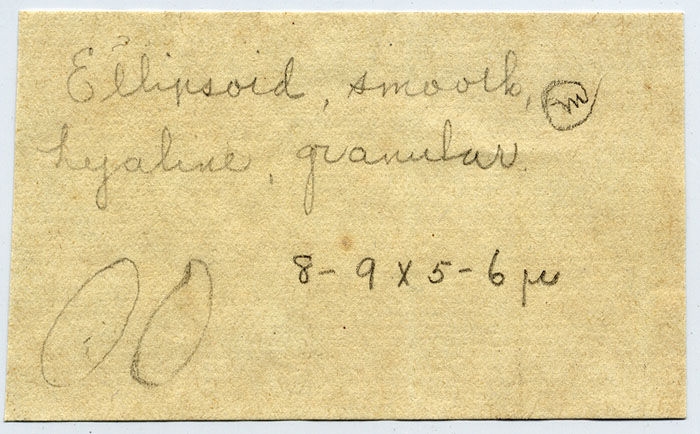 Ellipsoid, smooth, m
hyaline, granular
8-9 x 5-6 µ